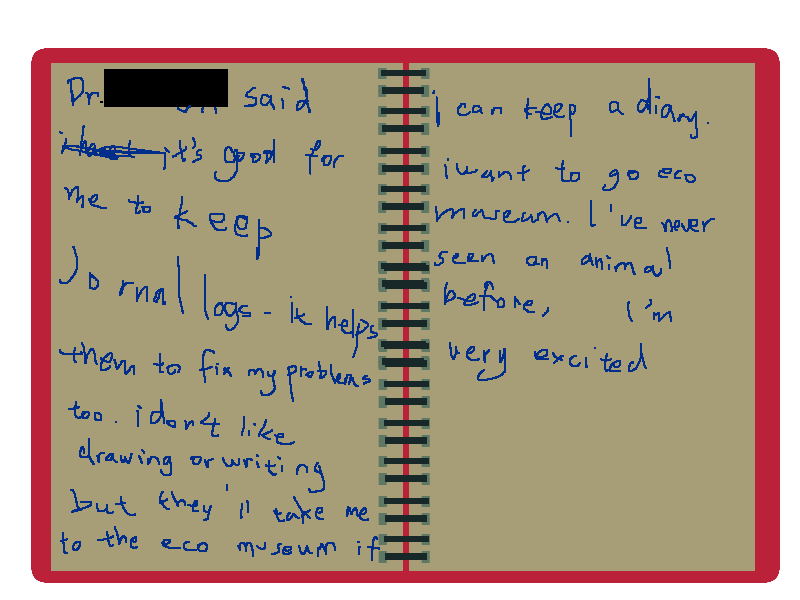 Dr. said
it's good for
me to keep
Jornal logs - it helps
them to fix my problems
too. i don't like
drawing or writing
but they'll take me
to the eco museum if
i can keep a diary.
i want to go eco
museum. I've never
seen an animal
before, i'm
very excited